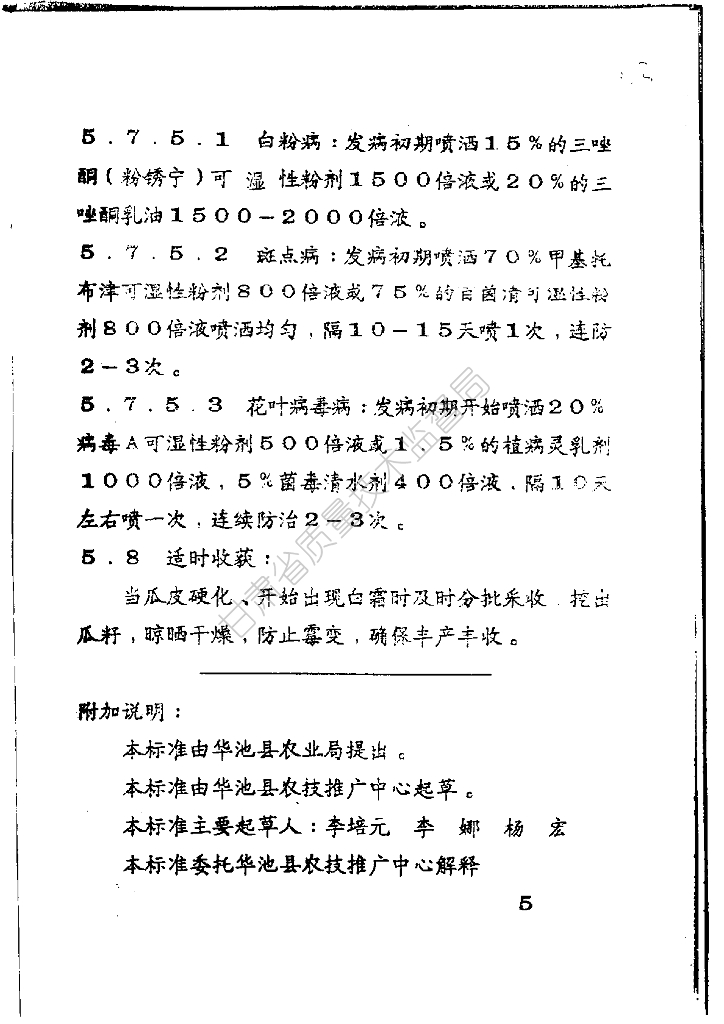 5.7.5.1 白粉病：发病初期喷洒15%的三唑
酮（粉锈宁）可 湿 性粉剂1500倍液或20%的三
唑酮乳油1500-2000倍液。
5.7.5.2 斑点病：发病初期喷洒70%甲基托
布津可湿性粉剂800倍液或75%的百菌清可湿性粉
剂800倍液喷洒均匀，隔10-15天喷1次，连防
2-3次。
5.7.5.3 花叶病毒病：发病初期开始喷洒20%
病毒A可湿性粉剂500倍液或1.5%的植病灵乳剂
1000倍液，5%菌毒清水剂400倍液，隔10天
左右喷一次，连续防治2-3次。
5.8 适时收获：
当瓜皮硬化、开始出现白霜时及时分批采收，挖出
瓜籽，晾晒干燥，防止霉变，确保丰产丰收。
附加说明：
本标准由华池县农业局提出。
本标准由华池县农技推广中心起草。
本标准主要起草人：李培元 李 娜 杨 宏
本标准委托华池县农技推广中心解释
5
甘肃省质量技术监督局